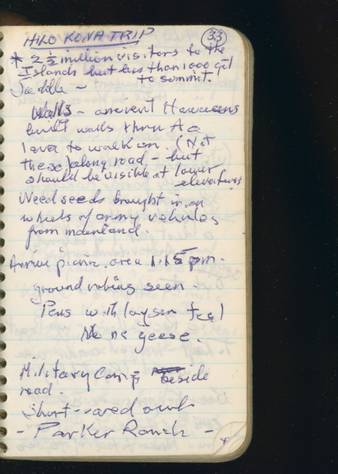 HILO KONA TRIP
33
* 2 ½ million visitors to the
Islands but less than 1000 get
to summit.
Saddle -
Walls - ancient Hawaiians
built walls thru Aa
lava to walk on. (Not
these) along road - but
should be visible at lower
elevations
Weed seeds brought in on
wheels of army vehicles
from mainland.
Arrive picnic area 1:15 pm.
ground robins seen.
Pens with laysan teal
Ne ne geese.
Military Camp beside
road.
Short-eared owl
- Parker Ranch -